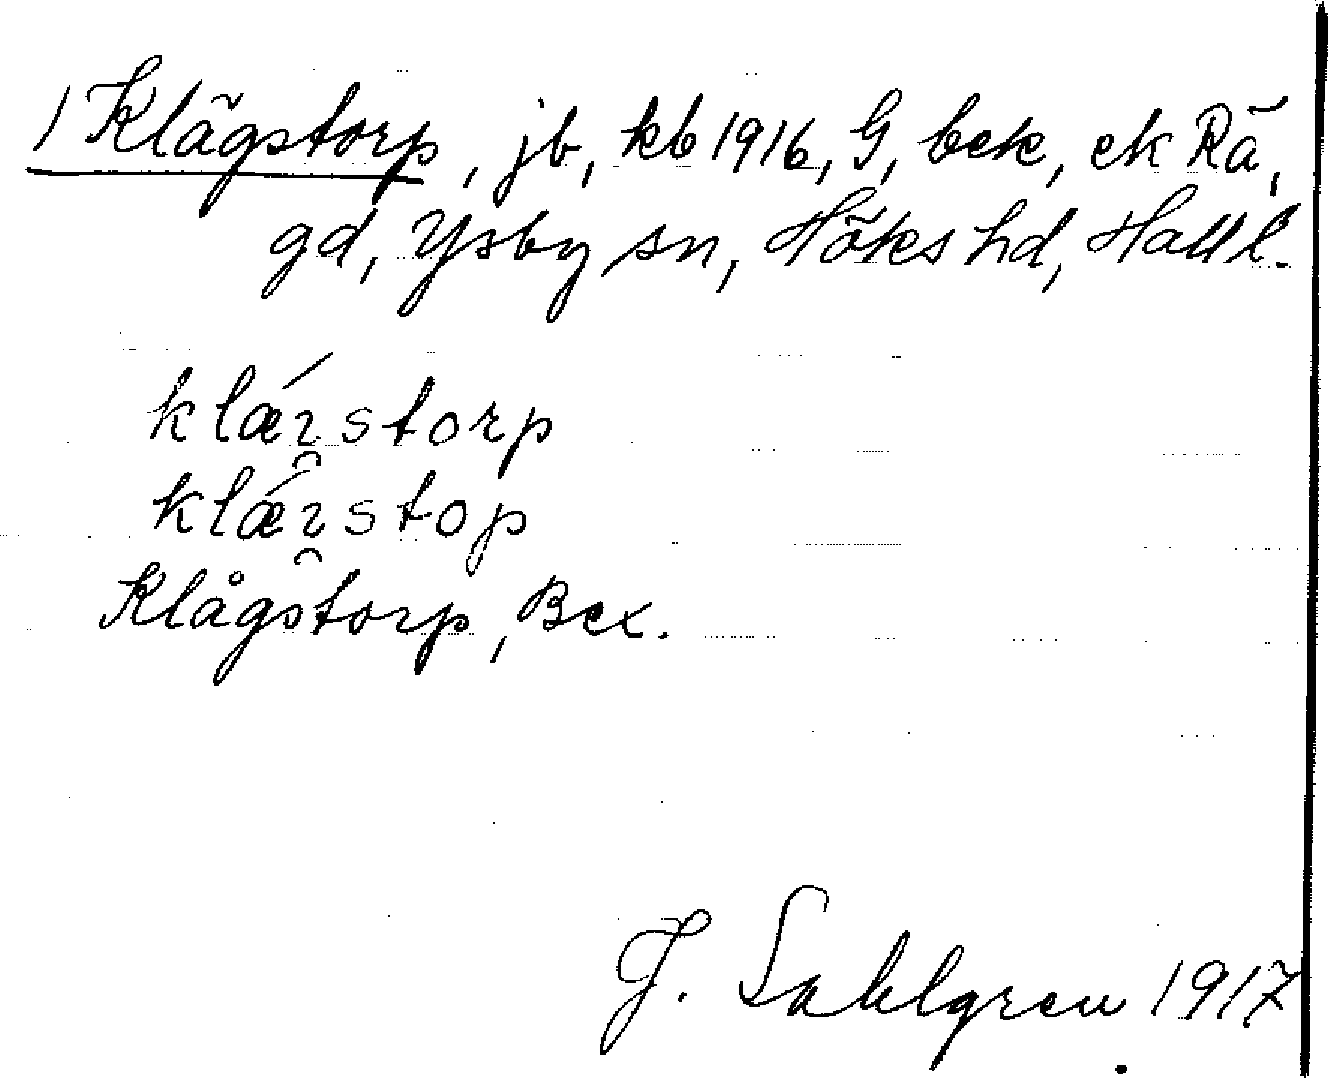 1 Klägstorp, jb, kb 1916, G, bek, ek Rä,
gd, Ysby sn, Höks hd, Hall l.
klǽı̯storp
klǽı̯stop
Klågstorp, Bex.
J. Sahlgren 1917